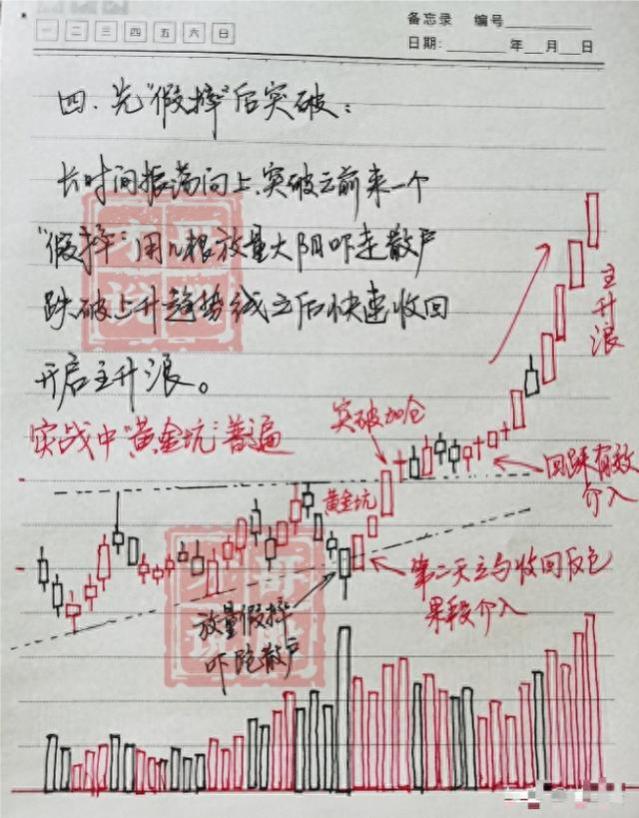 一 二 三 四 五 六 日
备忘录 编号
日期: 年 月 日
四.先"假摔"后突破:
长时间振荡向上,突破之前来一个
"假摔"用几根放量大阴吓走散户
跌破上升趋势线之后快速收回
开启主升浪。
主升浪
实战中"黄金坑"普遍
突破加仓
回踩有效
介入
黄金坑
第二天立马收回反包
果段介入
放量假摔
吓跑散户